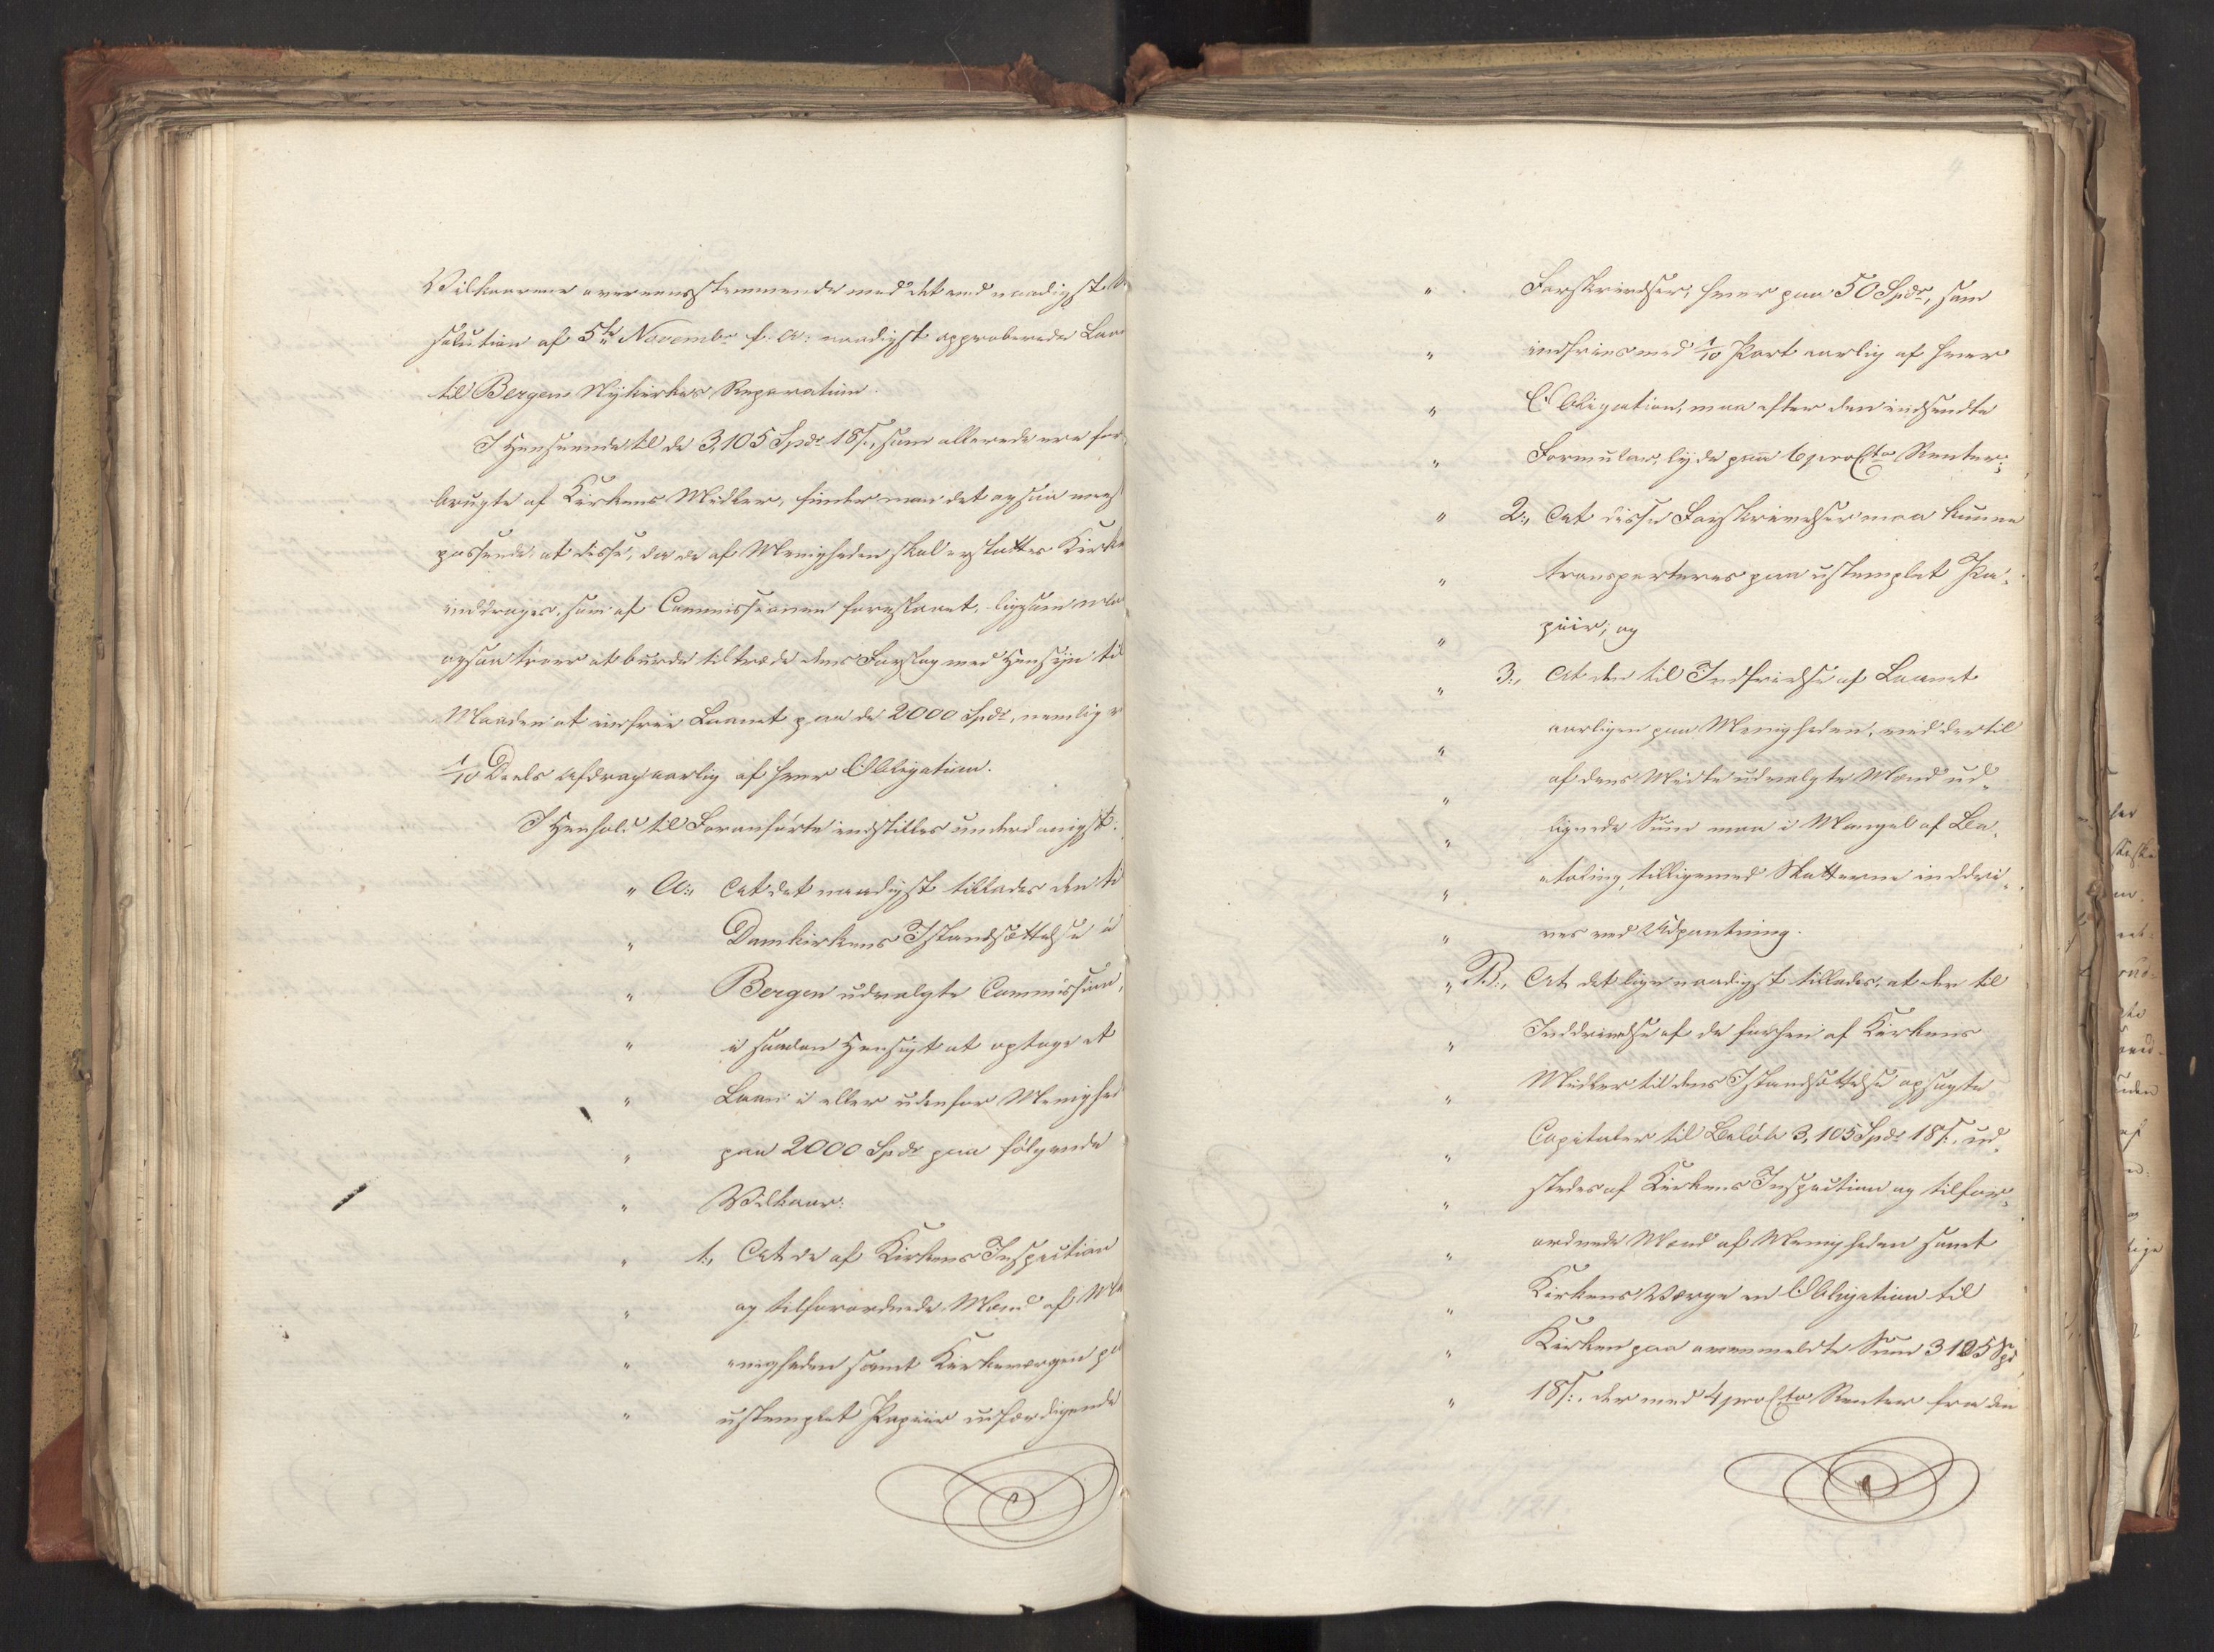 Vilkaarene overeensstemmende med det ved naadigst Re
solution af 5te Novembr f: A: naadigst approberede Laan
til Bergens Nykirkes Reparation.
I Henseende til de 3,105 Spdr 18 s., som allerede ere for
brugte af Kirkens Midler, finder man det ogsaa meest
passende, at disse, da de af Menigheden skal erstattes Kirken
inddrages, som af Commissionen foreslaaet, ligesom man
ogsaa troer at burde tiltræde dens Forslag med Hensyn til
Maaden at indfrie Laanet paa de 2000 Spdr, nemlig v
1/10 Deels Afdrag aarlig af hver Obligation.
I Henhold til Foranførte indstilles underdanigst:
" A:, At det naadigst tillades den til
" Domkirkens Istandsættelse i
" Bergen udvalgte Commission,
" i saadan Hensigt at optage et
" Laan i eller udenfor Menighed
" paa 2000 Spdr paa følgende
" Vilkaar:
" 1:, At de af Kirkens Inspection
" og tilforordnede Mænd af Me
" nigheden samt Kirkeværgen paa
" ustemplet Papiir udfærdigende
" Forskrivelser, hver paa 50 Spdr, som
" indfries med 1/10 Part aarlig af hver
" Obligation, maa efter den indsendte
" Formular, lyde paa 6 pro Cto Renter;
" 2:, At disse Forskrivelser maa kunne
" transporteres paa ustemplet Pa-
" piir; og
" 3:, At den til Indfrielse af Laanet
" aarligen paa Menigheden, ved dertil
" af dens Midte udvalgte Mænd ud-
" lignede Sum maa i Mangel af Be-
" taling, tilligemed Skatterne inddri-
" ves ved Udpantning.
" B:, At det ligenaadigst tillades, at der til
" Inddrivelse af de forhen af Kirkens
" Midler til dens Istandsættelse opsagte
" Capitaler til Beløb 3,105 Spdr 18 s., ud-
" stedes af Kirkens Inspection og tilfor-
" ordnede Mænd af Menigheden samt
" Kirkens Værge en Obligation til
" Kirken paa ovenmeldte Sum 3105 Spd
" 18 s:, der med 4 pro Cto Renter fra den